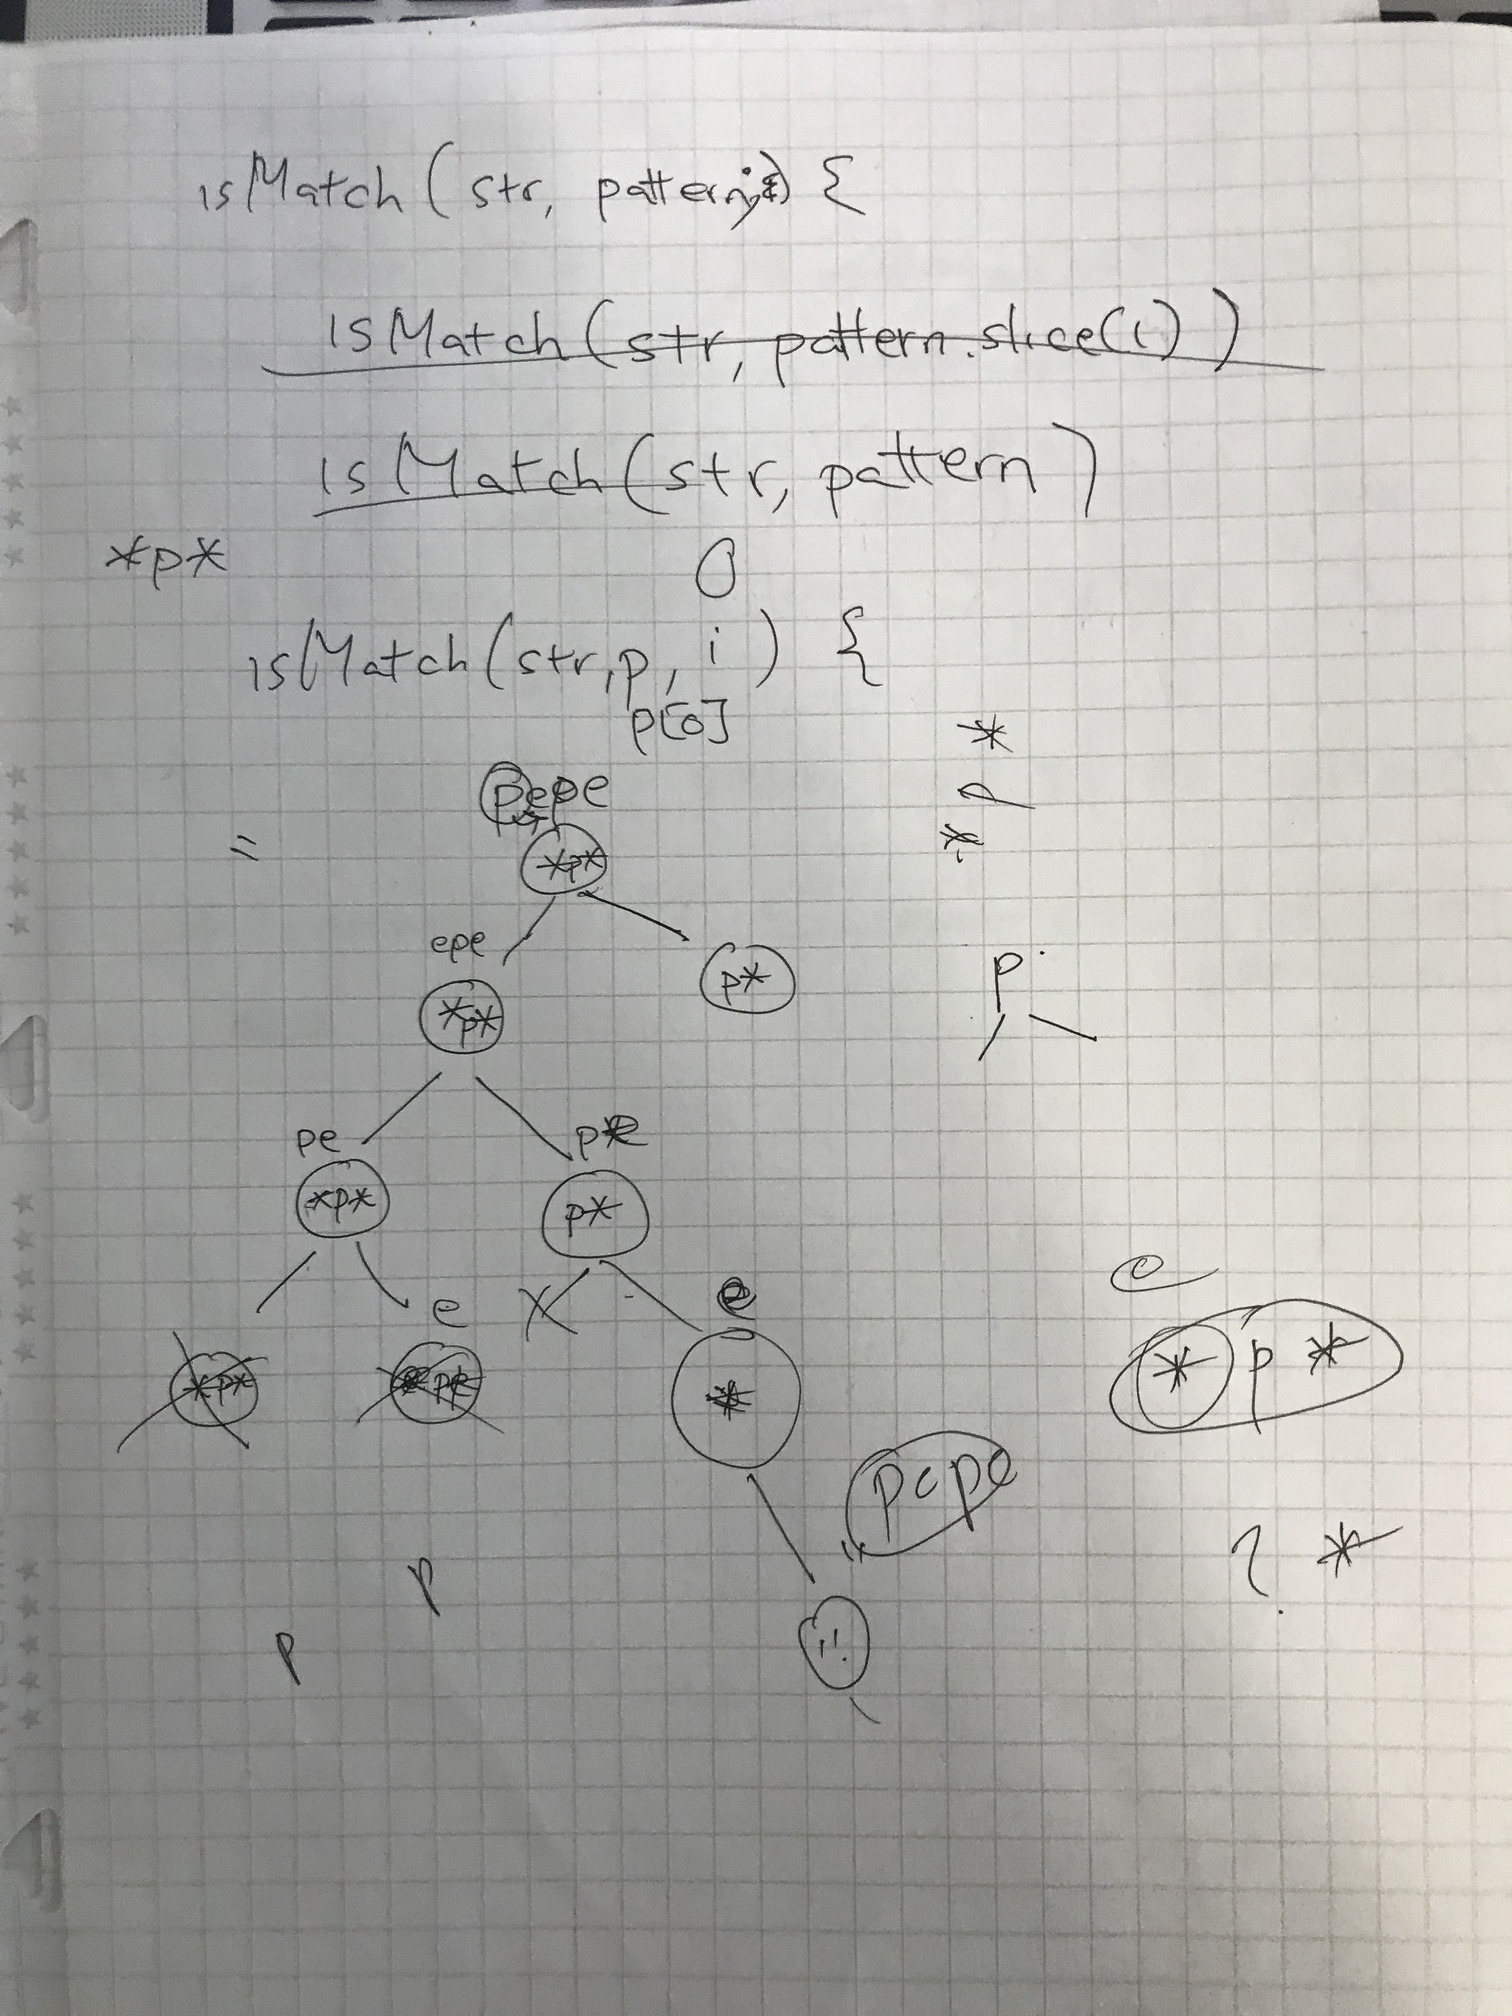 isMatch(str, pattern, i) {
isMatch(str, pattern.slice(1))
isMatch(str, pattern)
*p*
0
isMatch(str, p, i) {
p[0]
*
pepe
p
=
*p*
*
epe
p*
p
*p*
pe
*p*
p*
e
e
e
*p*
*
*p*
pepe
? *
p
p